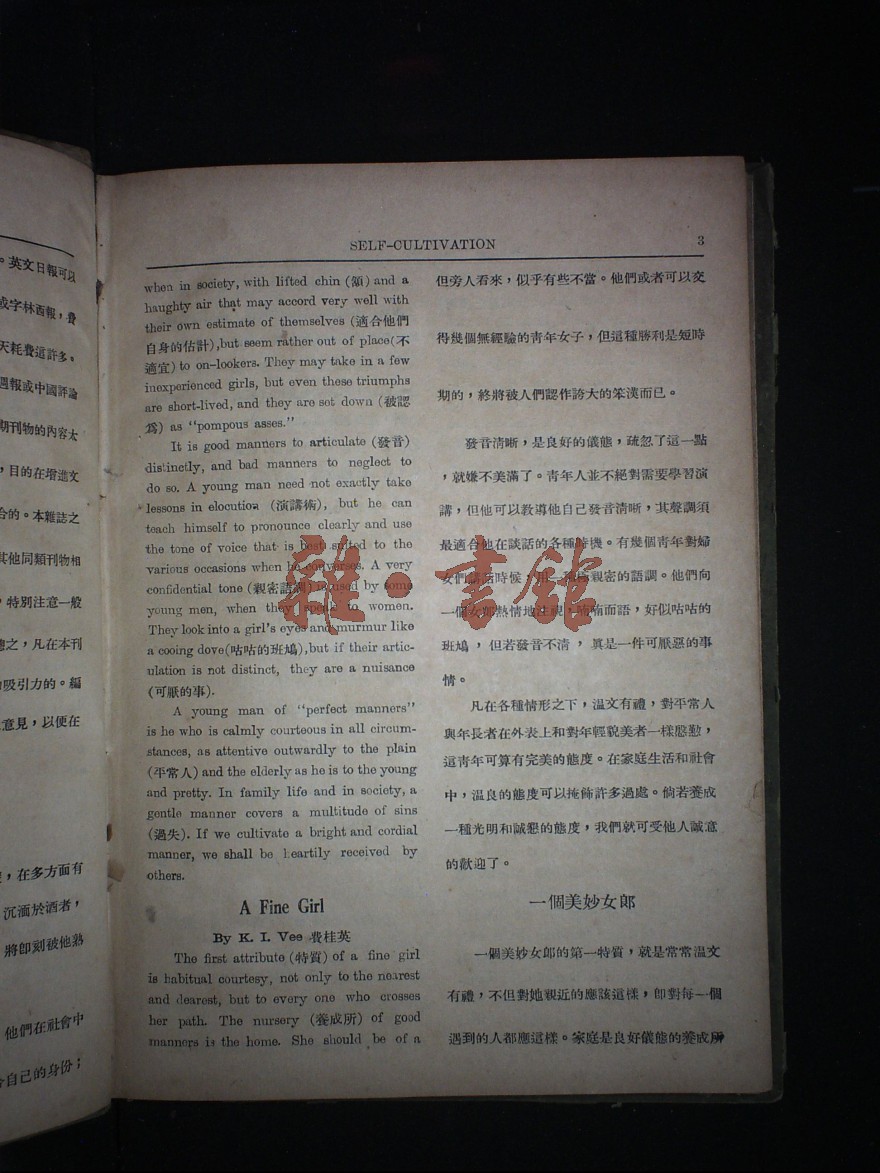 。英文日報可以
或字林西報，費
天耗費這許多。
週報或中國評論
期刊物的內容太
，目的在增進文
合的。本雜誌之
其他同類刊物相
，特別注意一般
總之，凡在本刊
吸引力的。編
意見，以便在
，在多方面有
沉湎於酒者，
將即刻被他熟
他們在社會中
合自己的身份；
SELF-CULTIVATION
3
when in society, with lifted chin (頷) and a
haughty air that may accord very well with
their own estimate of themselves (適合他們
自身的估計),but seem rather out of place(不
適宜) to on-lookers. They may take in a few
inexperienced girls, but even these triumphs
are short-lived, and they are set down (被認
爲) as “pompous asses.”
It is good manners to articulate (發音)
distinctly, and bad manners to neglect to
do so. A young man need not exactly take
lessons in elocution (演講術), but he can
teach himself to pronounce clearly and use
the tone of voice that is best suited to the
various occasions when he converses. A very
confidential tone (親密語調) is used by some
young men, when they speak to women.
They look into a girl's eyes and murmur like
a cooing dove(咕咕的班鳩),but if their artic-
ulation is not distinct, they are a nuisance
(可厭的事).
A young man of “perfect manners”
is he who is calmly courteous in all circum-
stances, as attentive outwardly to the plain
(平常人) and the elderly as he is to the young
and pretty. In family life and in society, a
gentle manner covers a multitude of sins
(過失). If we cultivate a bright and cordial
manner, we shall be heartily received by
others.
A Fine Girl
By K. I. Vee 費桂英
The first attribute (特質) of a fine girl
is habitual courtesy, not only to the nearest
and dearest, but to every one who crosses
her path. The nursery (養成所) of good
manners is the home. She should be of a
但旁人看來，似乎有些不當。他們或者可以交
得幾個無經驗的靑年女子，但這種勝利是短時
期的，終將被人們認作誇大的笨漢而已。
發音清晰，是良好的儀態，疏忽了這一點
，就嫌不美滿了。靑年人並不絕對需要學習演
講，但他可以敎導他自己發音清晰，其聲調須
最適合他在談話的各種時機。有幾個靑年對婦
女們講話時候，用一種親密的語調。他們向
一個女郎熱情地注視，喃喃而語，好似咕咕的
班鳩，但若發音不清，眞是一件可厭惡的事
情。
凡在各種情形之下，溫文有禮，對平常人
與年長者在外表上和對年輕貌美者一樣慇勤，
這靑年可算有完美的態度。在家庭生活和社會
中，溫良的態度可以掩飾許多過處。倘若養成
一種光明和誠懇的態度，我們就可受他人誠意
的歡迎了。
一個美妙女郎
一個美妙女郎的第一特質，就是常常溫文
有禮，不但對她親近的應該這樣，卽對每一個
遇到的人都應這樣。家庭是良好儀態的養成所
雜·書館